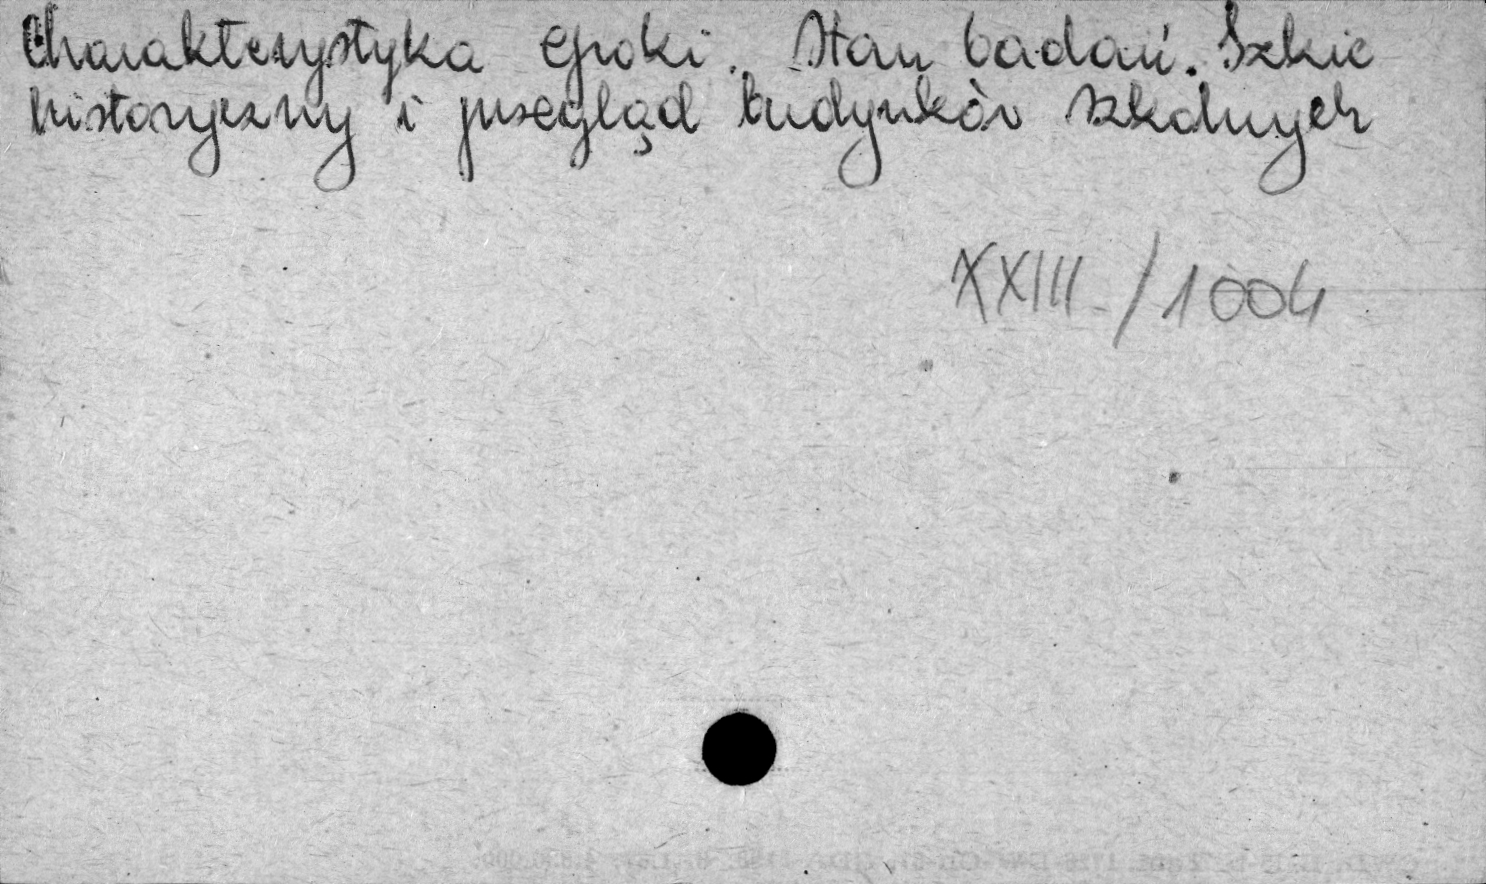 Charakterystyka epoki. Stan badań. Szkic
historyczny i przegląd budynków szkolnych
XXIII/1004